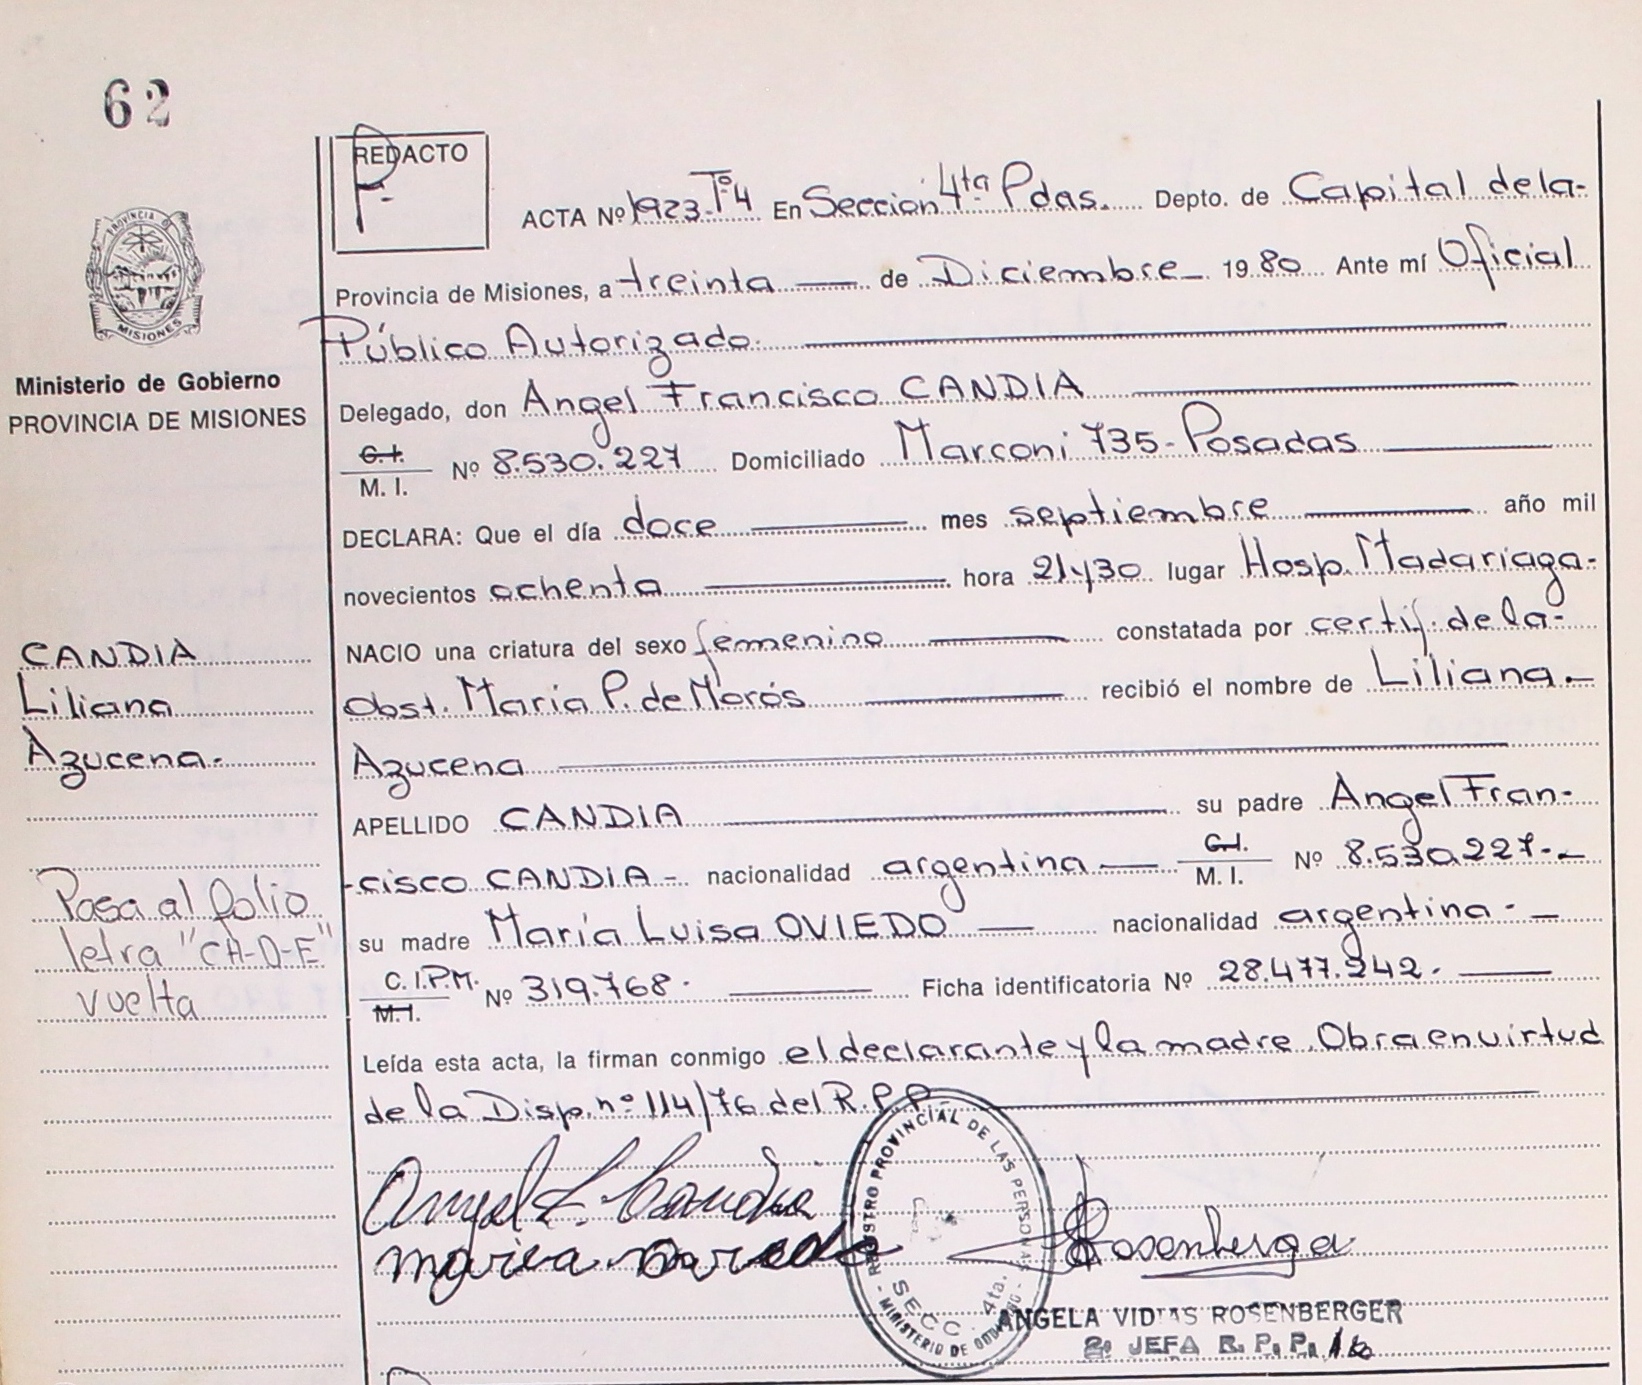 62
REDACTO
F.
ACTA Nº 1923-Tº4 En Sección 4ta Pdas. Depto. de Capital de la-
Provincia de Misiones, a treinta de Diciembre 1980 Ante mí Oficial
Público Autorizado.
PROVINCIA DE
MISIONES
Ministerio de Gobierno
PROVINCIA DE MISIONES
Delegado, don Angel Francisco CANDIA
C.I.
M. I. Nº 8.530.227 Domiciliado Marconi 735-Posadas
DECLARA: Que el día doce mes septiembre año mil
novecientos ochenta hora 21y30 lugar Hosp. Madariaga-
NACIO una criatura del sexo femenino constatada por certif. de la-
Obst. María P. de Morós recibió el nombre de Liliana.-
Azucena
CANDIA
Liliana
Azucena.
APELLIDO CANDIA su padre Angel Fran-
-cisco CANDIA- nacionalidad argentina C.I. M. I. Nº 8.530.227.-
su madre María Luisa OVIEDO nacionalidad argentina.-
C.I.P.M.
M.I. Nº 319.768. Ficha identificatoria Nº 28.477.242.
Pasa al folio
letra "CH-D-E"
vuelta
Leída esta acta, la firman conmigo el declarante y la madre. Obra en virtud
de la Disp. nº 114/76 del R.P.P
Angel F. Candia
Rosenberger
REGISTRO PROVINCIAL DE LAS PERSONAS
SECC. 4ta.
MINISTERIO DE GOBIERNO
ANGELA VIDIAS ROSENBERGER
2ª JEFA R. P. P.